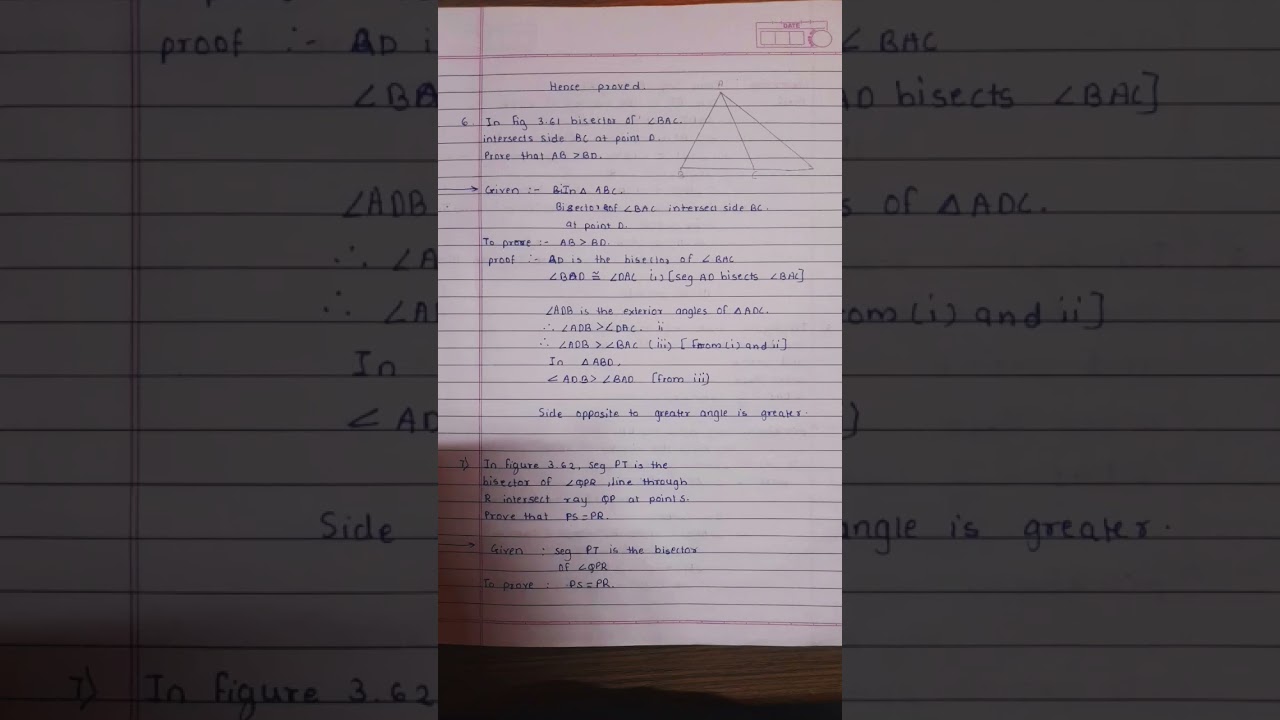 DATE
Hence proved.
6. In fig 3.61 bisector of ∠BAC.
intersects side BC at point D.
Prove that AB > BD.
Given :- In △ ABC.
Bisector of ∠BAC intersect side BC.
at point D.
To prove :- AB > BD.
proof :- AD is the bisector of ∠BAC
∠BAD ≅ ∠DAC (i) [seg AD bisects ∠BAC]
∠ADB is the exterior angles of △ADC.
∴ ∠ADB > ∠DAC. ii
∴ ∠ADB > ∠BAC (iii) [from (i) and ii]
In △ABD,
∠ADB > ∠BAD [from iii)
Side opposite to greater angle is greater.
7) In figure 3.62, seg PT is the
bisector of ∠QPR, line through
R intersect ray QP at point S.
Prove that PS = PR.
Given : seg PT is the bisector
of ∠QPR
To prove : PS = PR.